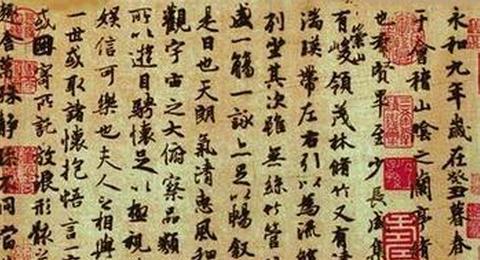 永和九年歲在癸丑暮春
于會稽山陰之蘭亭脩
也羣賢畢至少長咸集
有崇山峻領茂林脩竹又有清
湍暎帶左右引以為流觴
列坐其次雖無絲竹管
盛一觴一詠亦足以暢敘
是日也天朗氣清惠風和
觀宇宙之大俯察品類
所以遊目騁懷足以極視
娛信可樂也夫人之相與
一世或取諸懷抱悟言一
或因寄所託放浪形骸
趣舍萬殊靜躁不同當